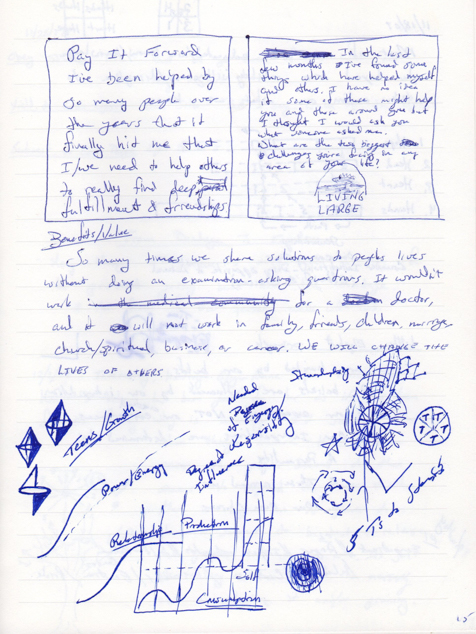 Pay It Forward
I've been helped by
so many people over
the years that it
finally hit me that
I/we need to help others
to really find deep
fulfillment & friendships
In the last
few months I've found some
things which have helped myself
and others. I have no idea
if some of these might help
you and those around you but
I thought I would ask you
what someone asked me.
What are the two biggest
challenges you're facing in any
area of your life?
LIVING
LARGE
Benefits/Value
So many times we share solutions to peoples lives
without doing an examination-asking questions. It wouldn't
work in the medical community for a doctor,
and it will not work in family, friends, children, marriage,
church/spiritual, business, or career. WE WILL CHANGE THE
LIVES OF OTHERS
Teams/Growth
Power/Energy
Needed
of Energy/
Influence
T T T T T
5 T's to
Relationship Production
Self
Consumption